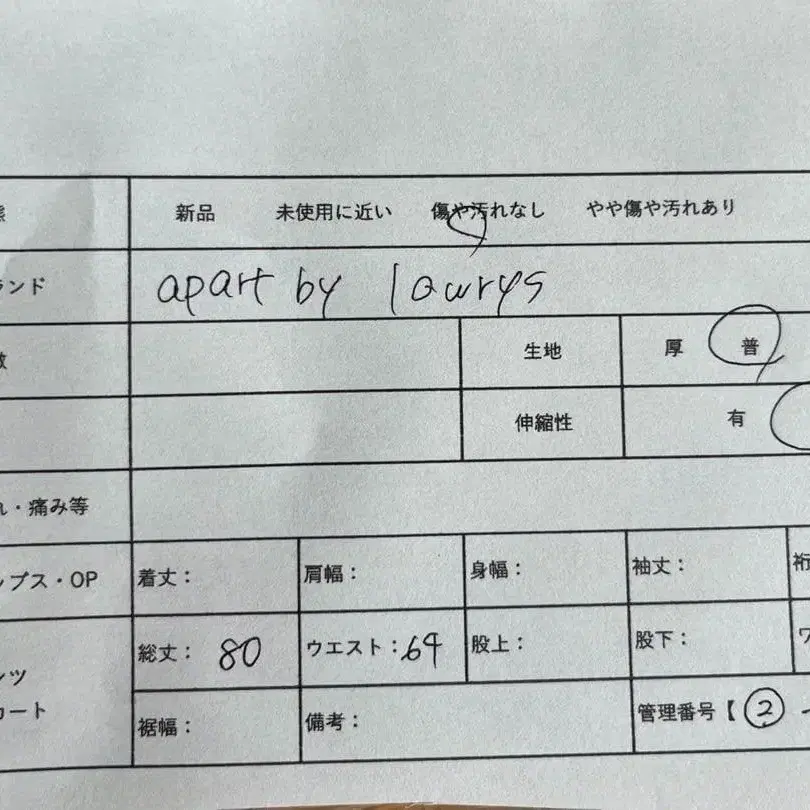 態 新品 未使用に近い 傷や汚れなし やや傷や汚れあり
ランド apart by lowrys
徴 生地 厚 普
伸縮性 有
れ・痛み等
ップス・OP 着丈： 肩幅： 身幅： 袖丈： 裄
ンツ 総丈：80 ウエスト：64 股上： 股下： ワ
カート 裾幅： 備考： 管理番号【 2